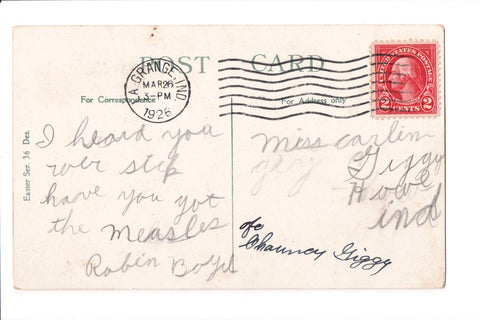 POST CARD
LA GRANGE, IND.
MAR 26
3-PM
1926
UNITED STATES POSTAGE
2 CENTS 2
For Correspondence
For Address only
Easter Ser. 36 Des.
I heard you
wer sick
have you got
the Measles
Robin Boyd
Miss Carlin
Giggy
Howe
ind
c/o
Chauncy Giggy